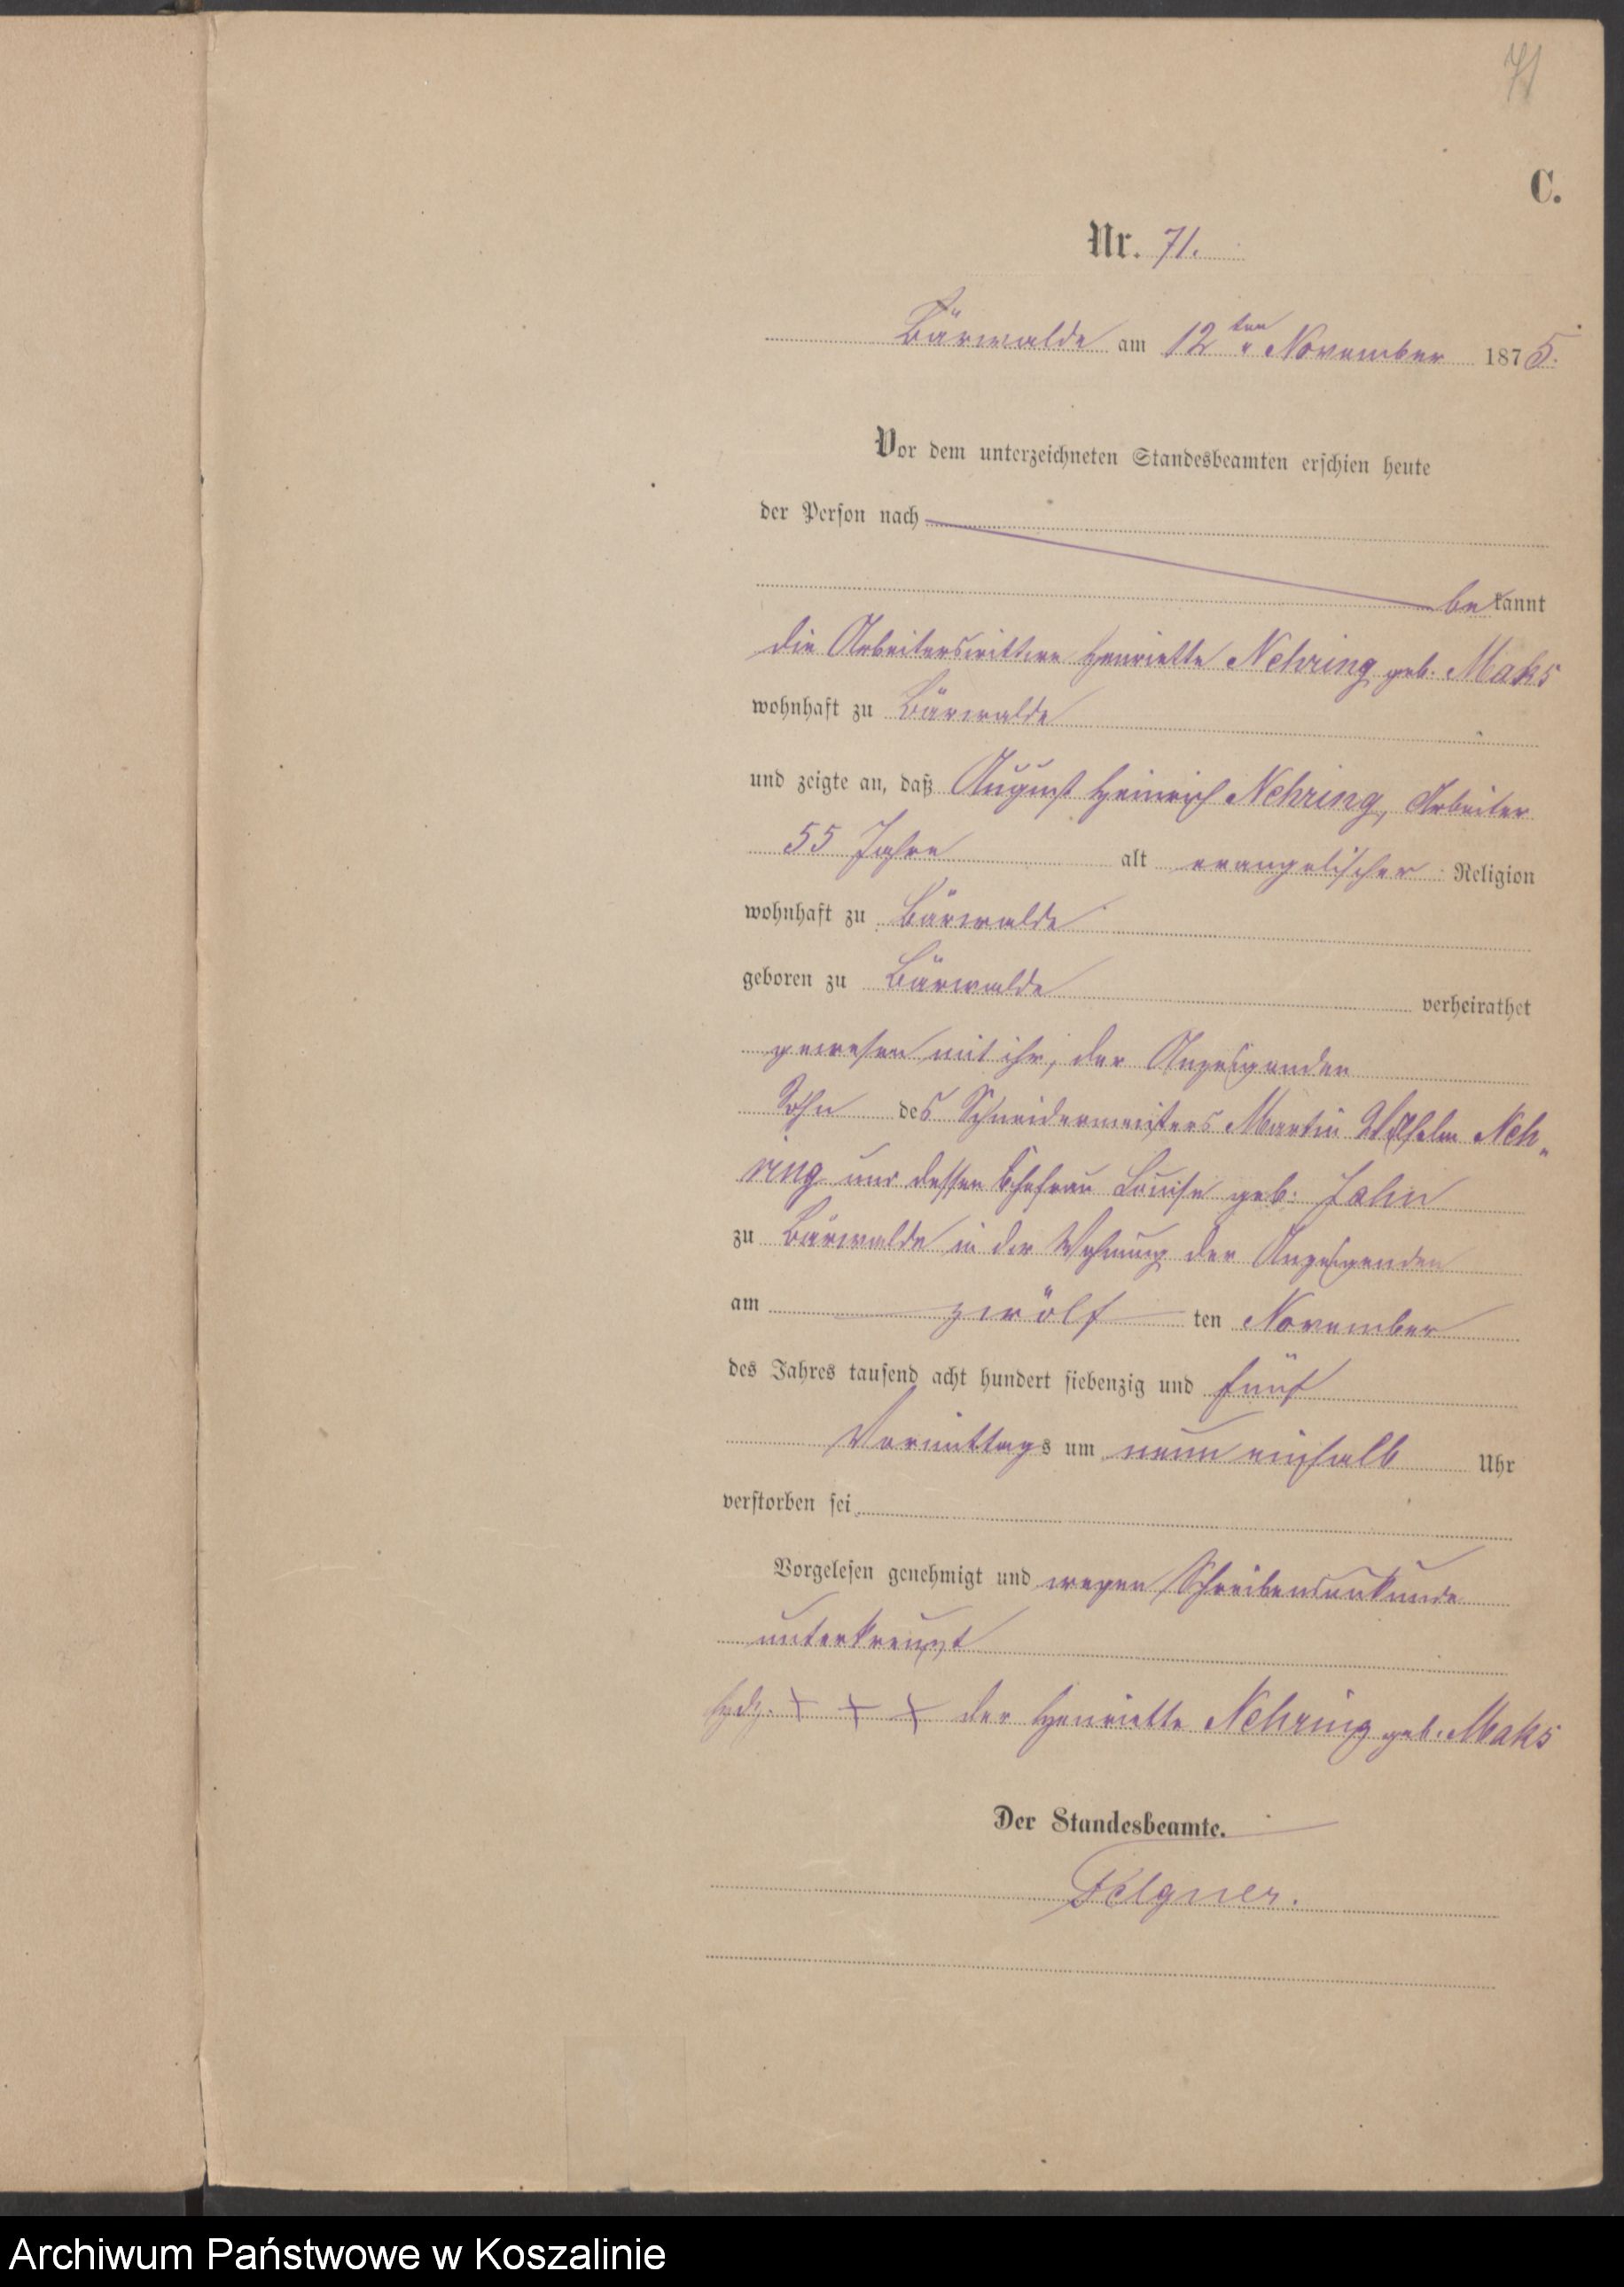 71
C.
Nr. 71.
Bärwalde am 12ten November 1875.
Vor dem unterzeichneten Standesbeamten erschien heute
der Person nach
bekannt
die Arbeiterswittwe Henriette Nehring geb. Maks
wohnhaft zu Bärwalde
und zeigte an, daß August Heinrich Nehring, Arbeiter
55 Jahre alt evangelischer Religion
wohnhaft zu Bärwalde
geboren zu Bärwalde verheirathet
gewesen mit ihr, der Anzeigenden
Sohn des Schneidermeisters Martin Wilhelm Neh-
ring und dessen Ehefrau Louise geb. Jahn
zu Bärwalde in der Wohnung der Anzeigenden
am zwölf ten November
des Jahres tausend acht hundert siebenzig und fünf
Vormittags um neun einhalb Uhr
verstorben sei
Vorgelesen genehmigt und wegen Schreibensunkunde
unterkreuzt
Hdz. + + + der Henriette Nehring geb. Maks
Der Standesbeamte.
Felgner.
Archiwum Państwowe w Koszalinie